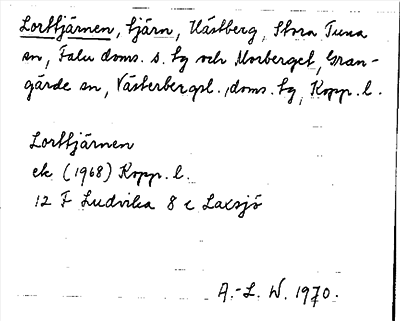 Lorttjärnen, tjärn, Håstberg, Stora Tuna
sn, Falu doms. s. tg och Morberget, Gran-
gärde sn, Västerbergsl. doms. tg, Kopp. l.
Lorttjärnen
ek (1968) Kopp. l.
12 F Ludvika 8 c Laxsjö
A.-L. W. 1970.